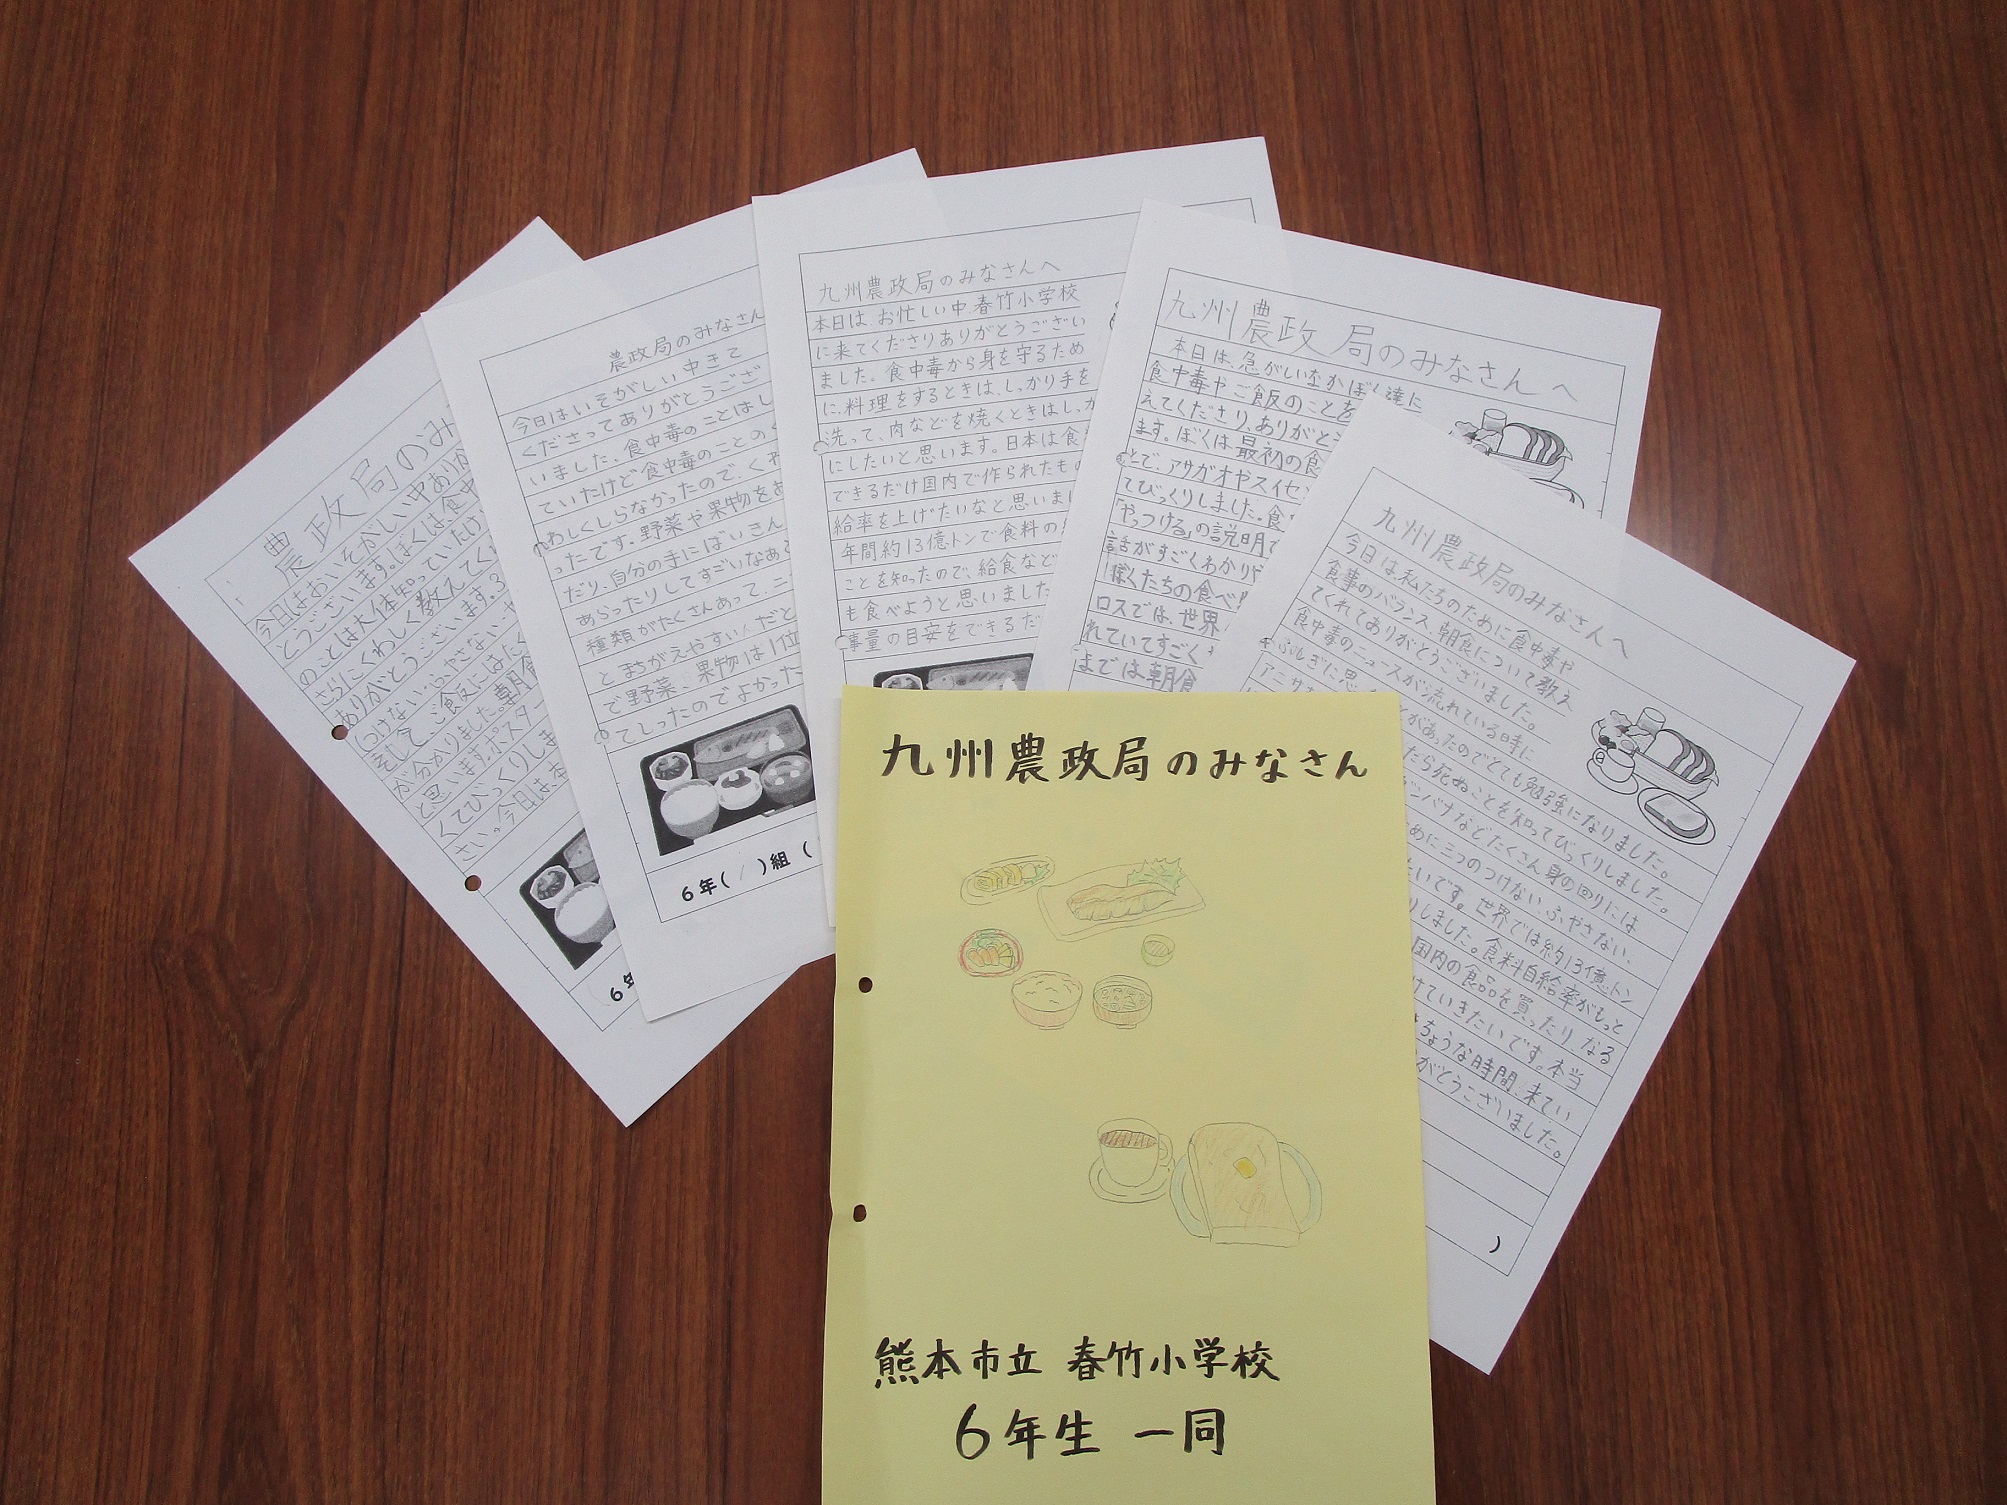 農政局のみ
今日はおいそがしい中あり
とうございます。ぼくは、食中
のことは大体知っていたけ
さらにくわしく教えてく
ありがとうございます。3
つけない、ふやさない、や
そして、ご飯にはたく
が分かりました。朝食
と思います。ポスター
くてびっくりしま
さい。今日は、本
6年
農政局のみなさん
今日はいそがしい中きて
くださってありがとうござ
いました。食中毒のことはし
ていたけど食中毒のことのく
わしくしらなかったので、くわ
ったです。野菜や果物をあ
だり、自分の手にばいきん
あらったりしてすごいなあ
種類がたくさんあって、ニ
とまちがえやすいんだと
で野菜、果物は1位
てしったのでよかった
6年( / )組 (
九州農政局のみなさんへ
本日は、お忙しい中、春竹小学校
に来てくださりありがとうござい
ました。食中毒から身を守るため
に、料理をするときは、しっかり手を
洗って、肉などを焼くときはしっか
にしたいと思います。日本は食
できるだけ国内で作られたもの
給率を上げたいなと思いまし
年間約13億トンで食料の
ことを知ったので、給食など
も食べようと思いました
事量の目安をできるだ
九州農政局のみなさんへ
本日は、急がしいなかぼく達に
食中毒やご飯のことを
えてくださり、ありがと
ます。ぼくは最初の食
とで、アサガオやスイセン
てびっくりしました。食
「やっつける」の説明で
話がすごくわかりや
ぼくたちの食べ
ロスでは、世界
れていてすごく
までは朝食
九州農政局のみなさんへ
今日は、私たちのために食中毒や
食事のバランス、朝食について教え
てくれてありがとうございました。
食中毒のニュースが流れている時に
ふしぎに思 とがあったのでとても勉強になりました。
アニサキ たら死ぬことを知ってびっくりしました。
バナなどたくさん身の回りには
めに三つのつけない、ふやさない、
たいです。世界では約13億トン
りしました。食料自給率がもっと
国内の食品を買ったりなる
けていきたいです。本当
ちょうな時間、来てい
がとうございました。
)
九州農政局のみなさん
熊本市立 春竹小学校
6年生 一同